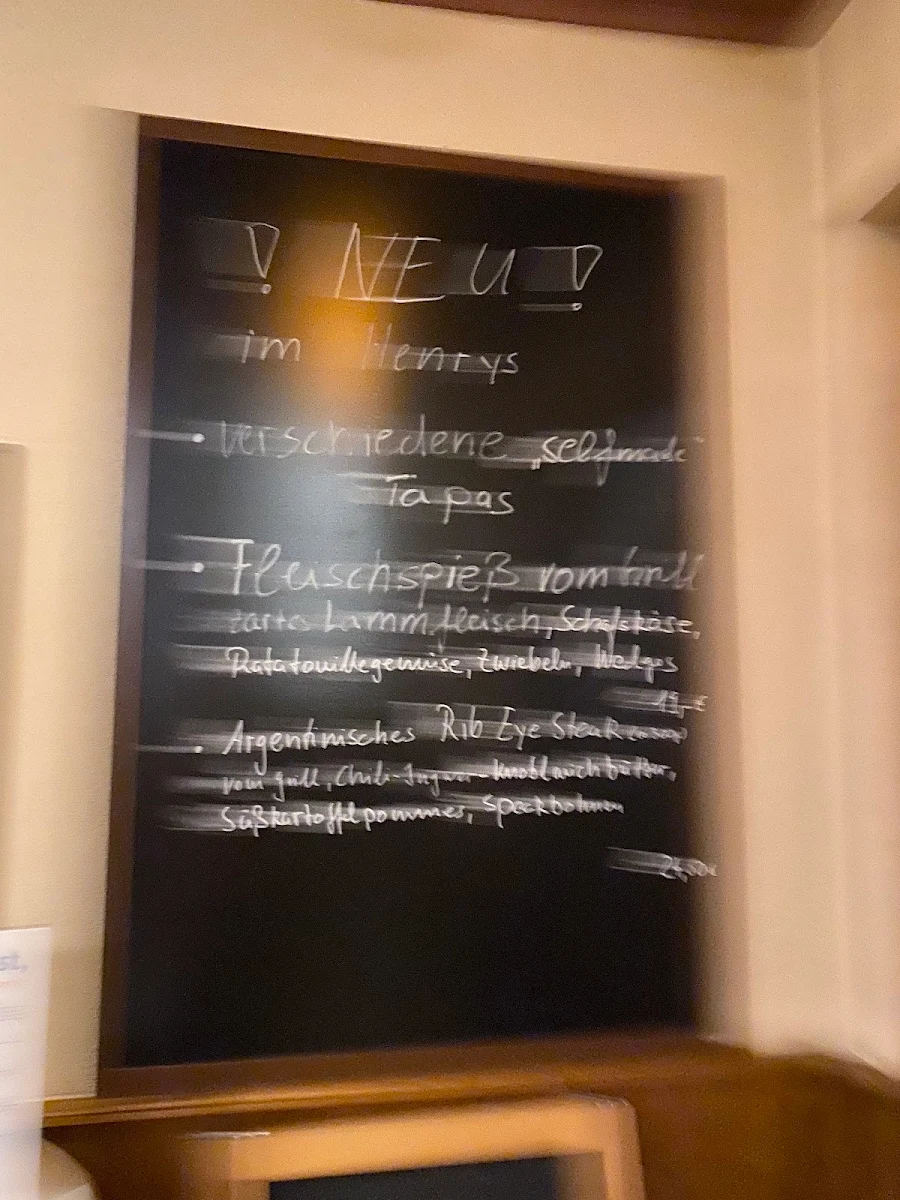 ! NEU !
im Henrys
verschiedene „selfmade"
Tapas
Fleischspieß vom Grill
zartes Lammfleisch, Schafskäse,
Ratatouillegemüse, Zwiebeln, Wedges
Argentinisches Rib Eye Steak
vom Grill, Chili-Ingwer-Knoblauchbutter,
Süßkartoffelpommes, Speckbohnen
st,